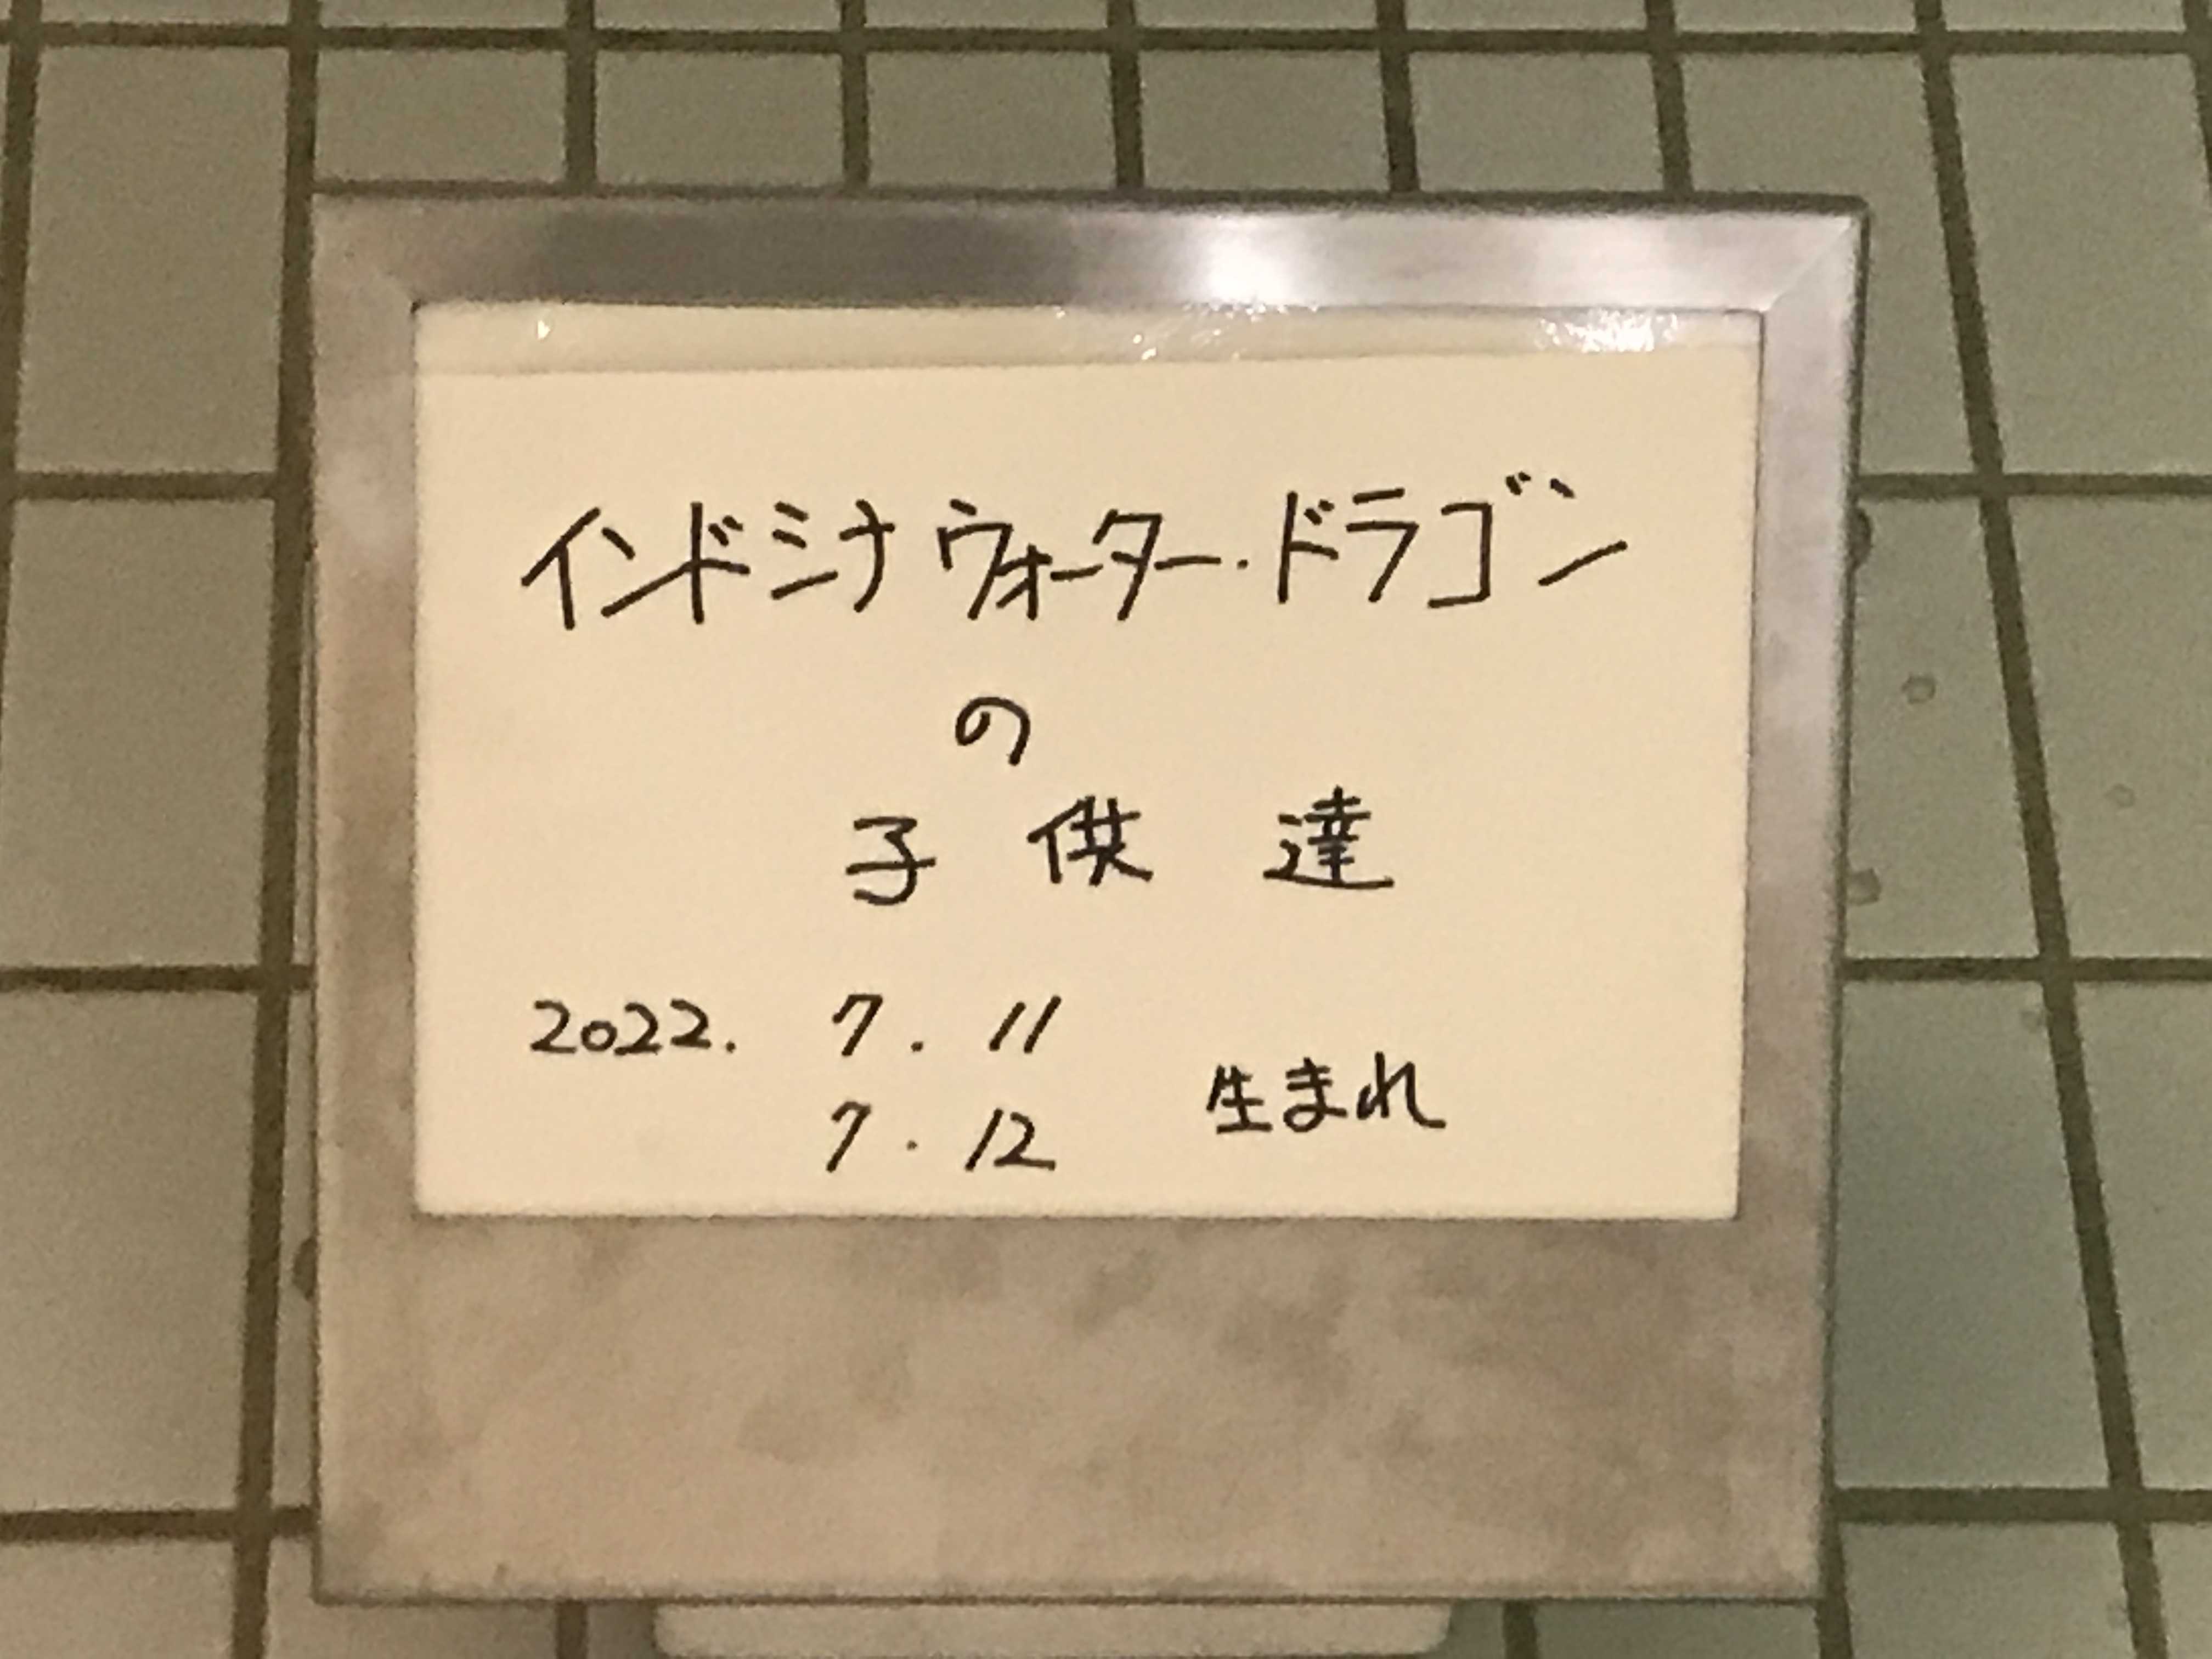 インドミナウォーター・ドラゴン
の
子供達
2022. 7. 11
7. 12
生まれ